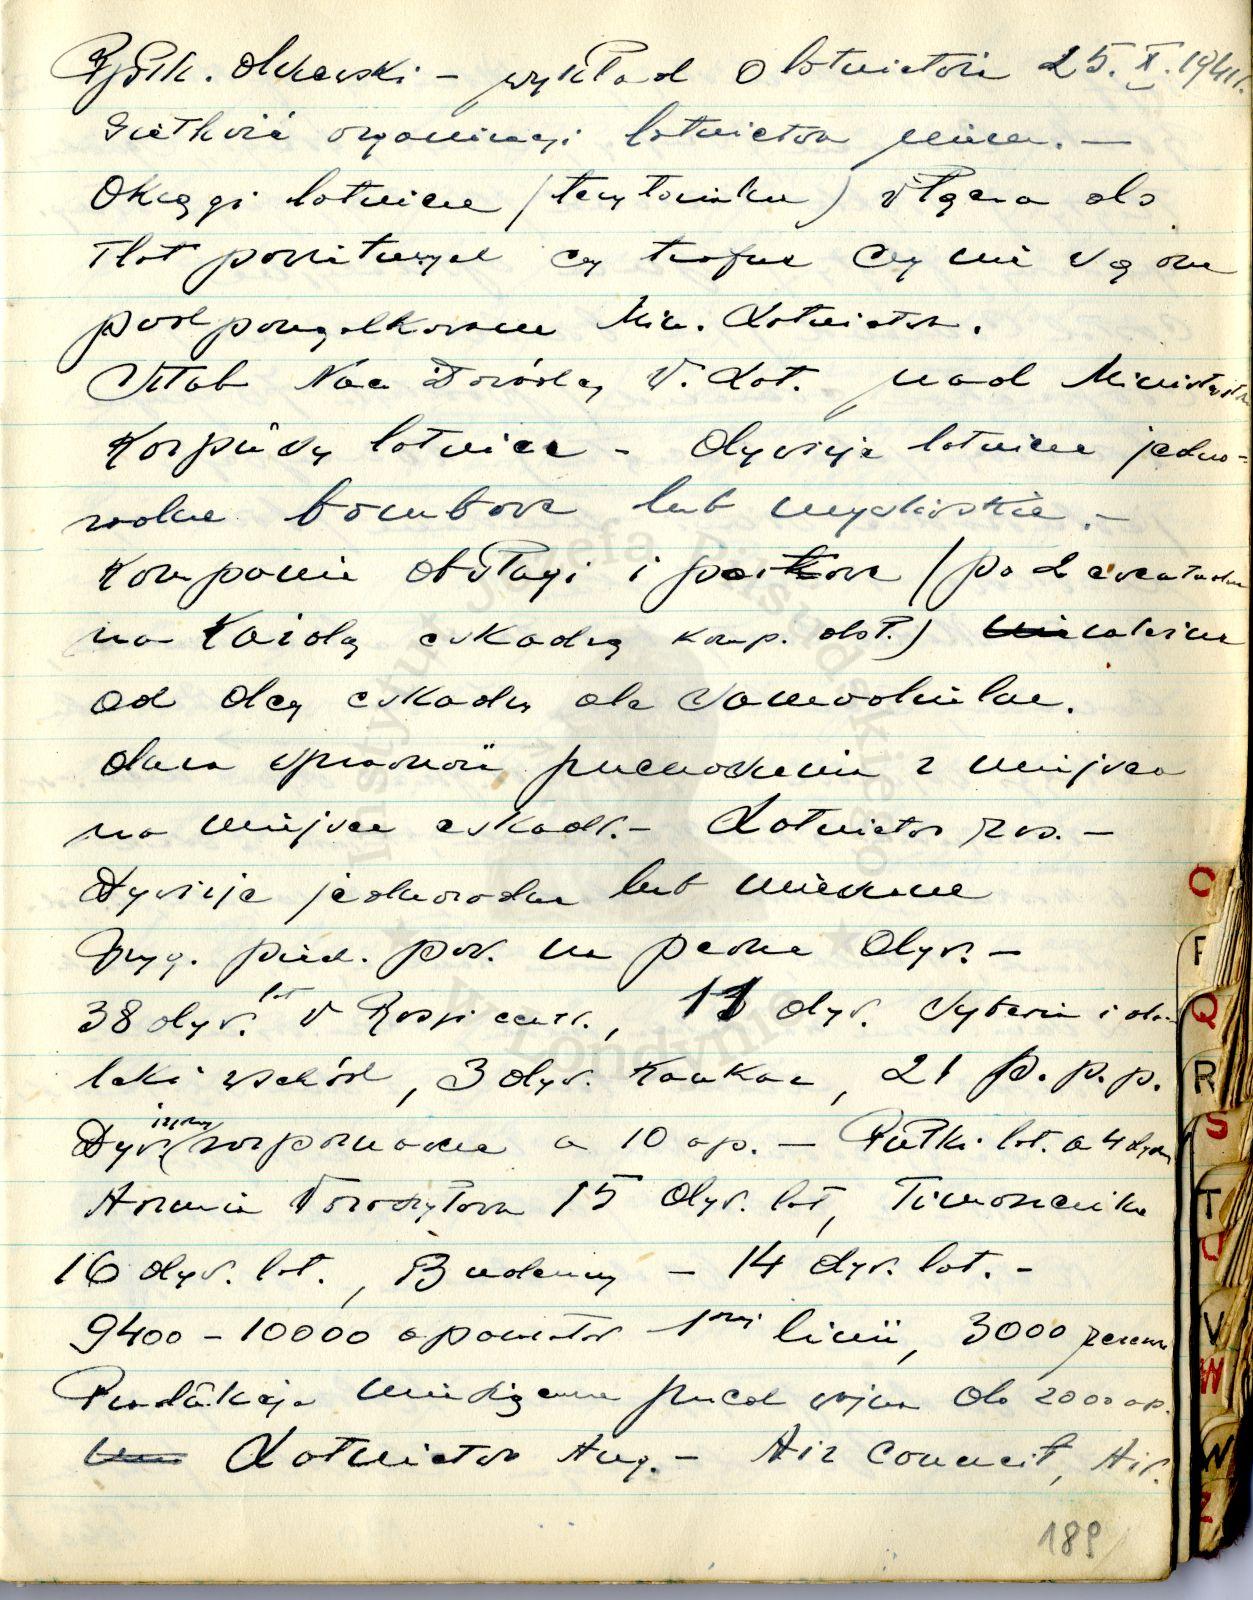 Ppłk. Olszewski – wykład o lotnictwie 25. X. 1941 r.
Giętkość organizacji lotnictwa niem. –
Okręgi lotnicze (terytorialne) włącza do
flot powietrznych czy trafne czy nie są one
podporządkowane Min. Lotnictwa.
Sztab Nacz. Dowódcy S. Lot. nad Ministerstw
Korpusy lotnicze – dywizje lotnicze jedno-
rodne bombowe lub myśliwskie. –
Kompanie obsługi i portowe (po 2
na każdą eskadrę komp. obsł.) niezależne
od dcy eskadry ale samodzielne.
dana sprawność przenoszenia z miejsca
na miejsce eskadr. – Lotnictwo ros. –
Dywizje jednorodne lub mieszane
Przyg. pow. na pewne dyw. –
38 dyw. lot w Rosji centr., 11 dyw. Syberia i da-
leki wschód, 3 dyw. Kaukaz, 21 p. p. p.
Dyw. rozpoznawcze a 10 ap. – Pułki lot. a 4 dyony
Armia Woroszyłowa 15 dyw. lot, Timoszenki
16 dyw. lot., Budenny – 14 dyw. lot. –
9400 – 10000 aparatów 1szej linii, 3000 rezerw
Produkcja miesięczna przed wojną do 2000 ap.
Lotnictwo Ang. – Air Council, Air.
189
O
P
Q
R
S
T
U
V
W
W
Z
Instytut Józefa Piłsudskiego
w Londynie